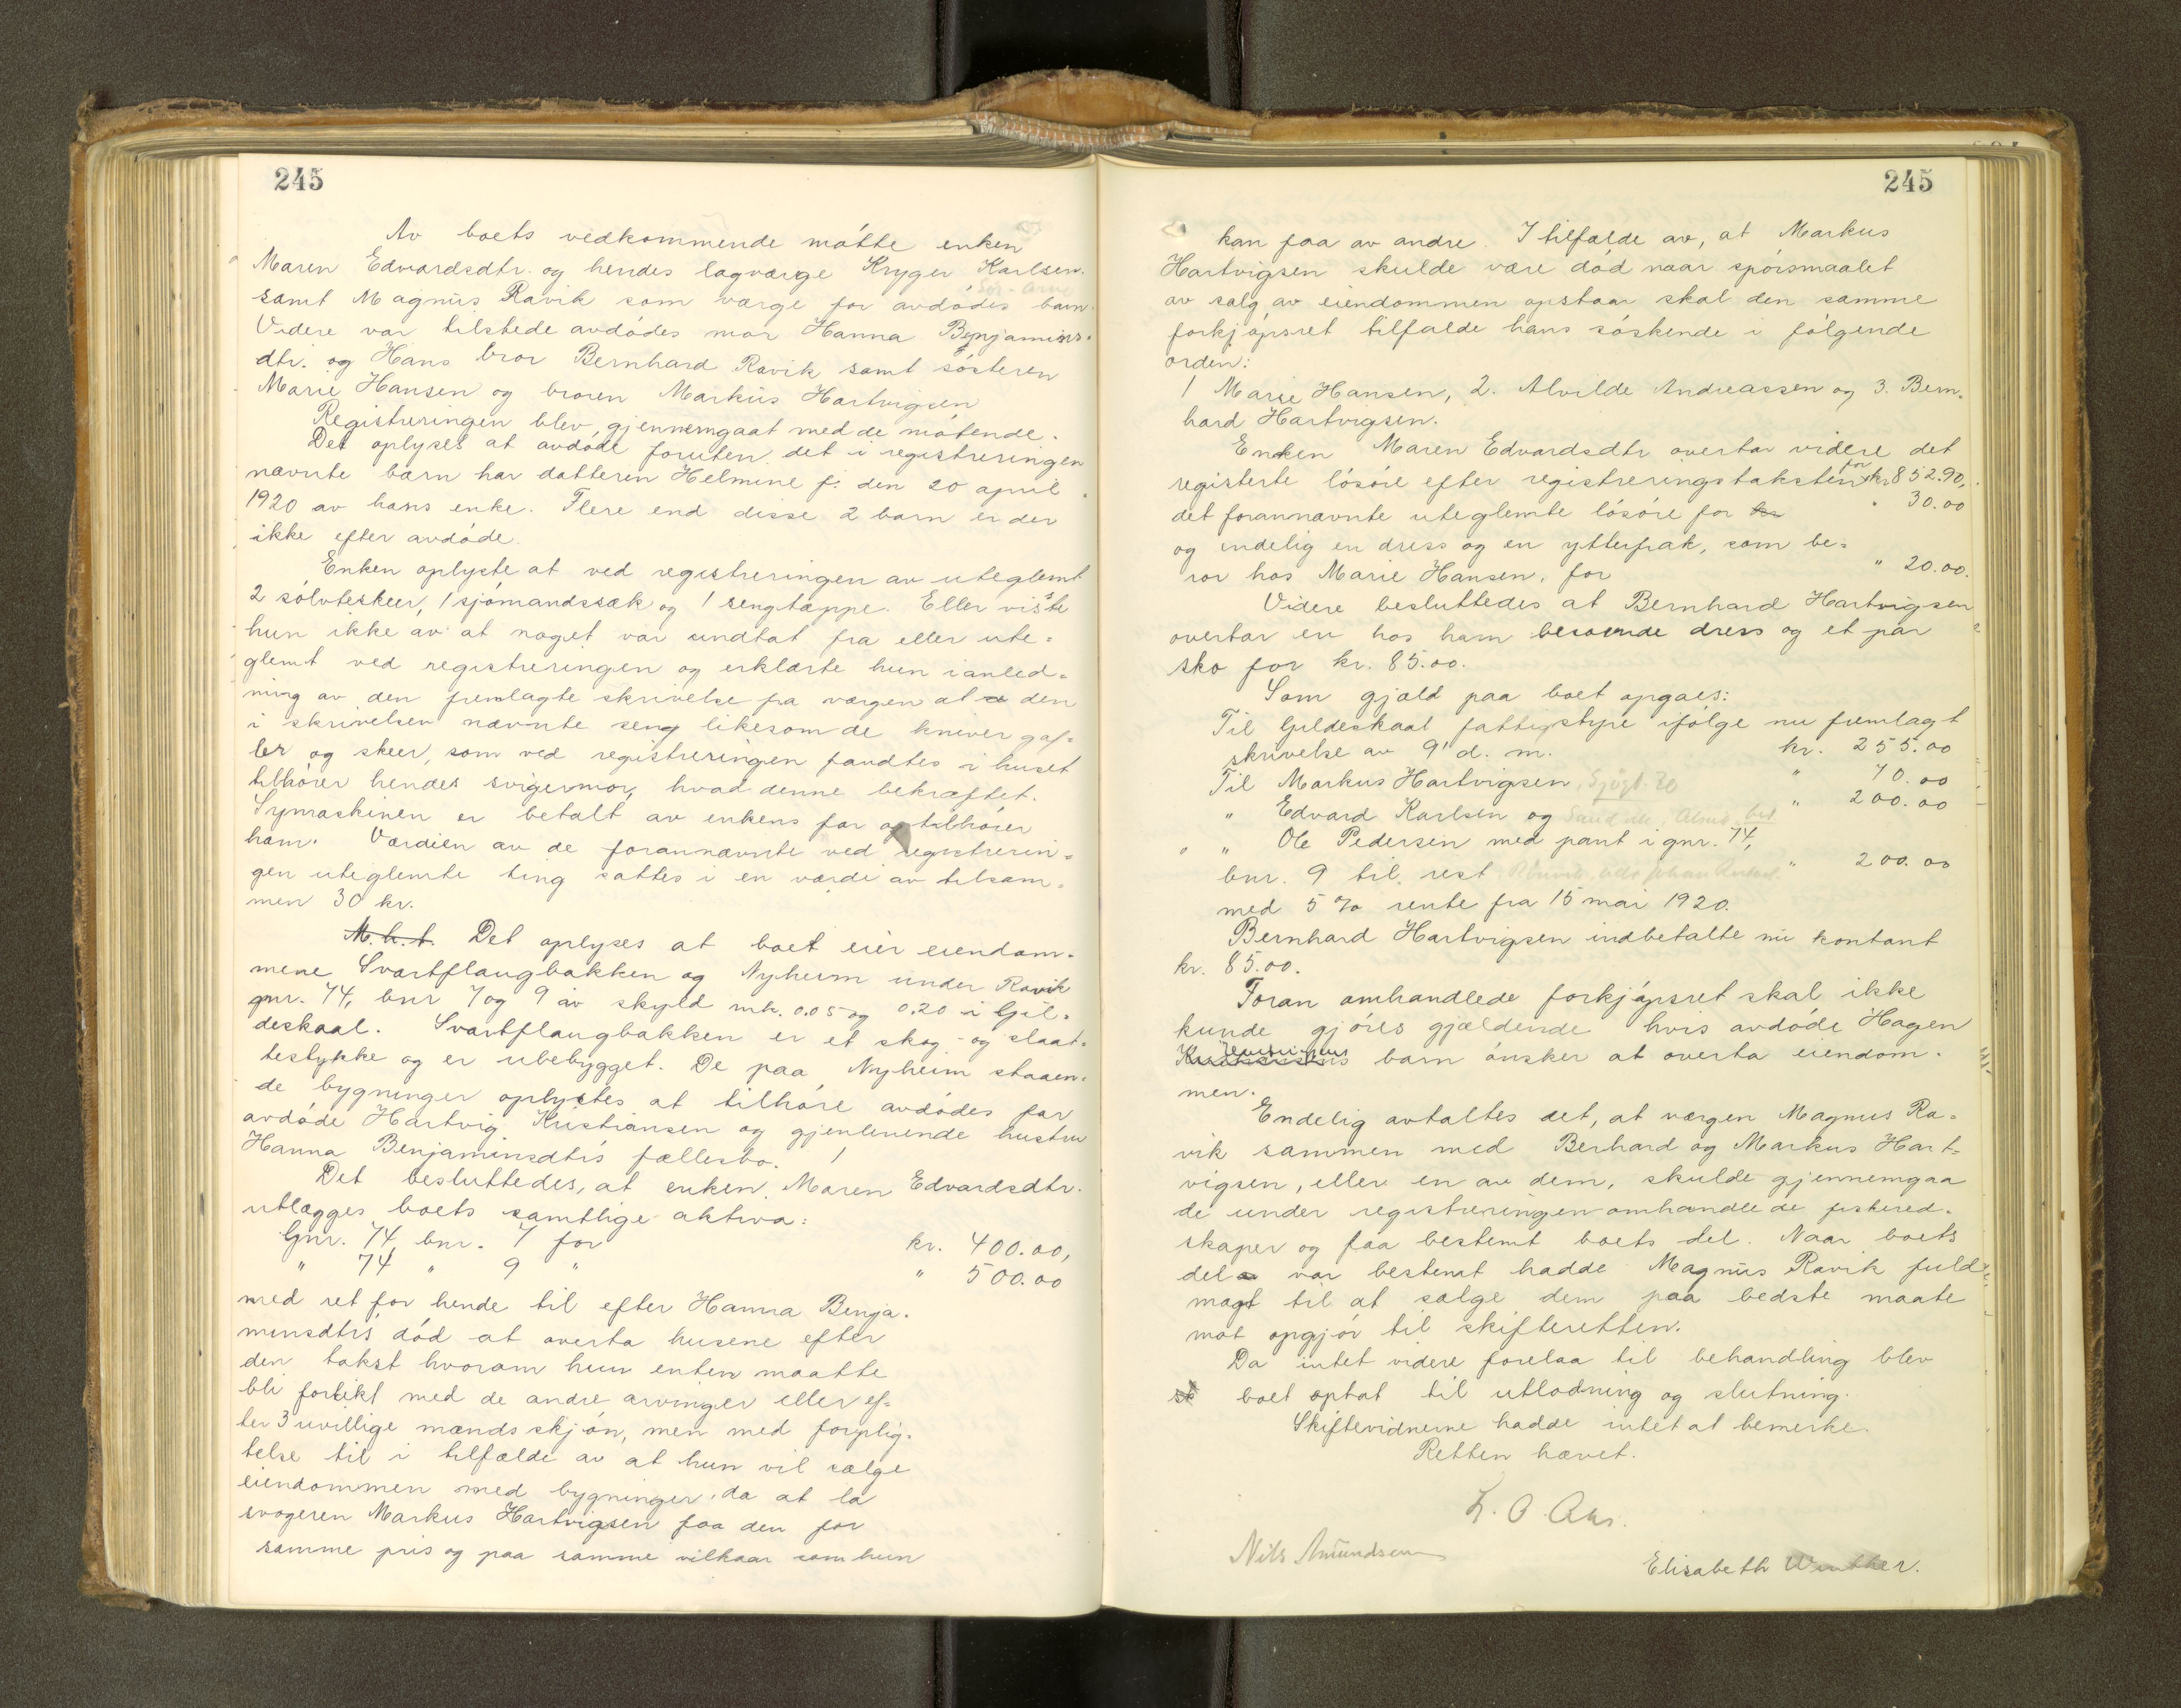 245
Av boets vedkommende mötte enken
Maren Edvardsdtr. og hendes lagværge Kryger Karlsen.
samt Magnus Ravik som værge for avdödes barn.
Videre var tilstede avdödes mor Hanna Benjamins-
dtr. og Hans bror Bernhard Ravik samt sösteren
Marie Hansen og broren Markus Hartvigsen
Registreringen blev gjennemgaat med de mötende.
Det oplyses at avdöde foruten det i registreringen
nævnte barn har datteren Helmine f. den 20 april
1920 av hans enke. Flere end disse 2 barn er der
ikke efter avdöde.
Enken oplyste at ved registreringen av uteglemt
2 sölvteskeer, 1 sjömandssæk og 1 sengtæppe. Eller visste
hun ikke av at noget var undtat fra eller ute-
glemt ved registreringen og erklærte hun i anled-
ning av den fremlagte skrivelse fra værgen at den
i skrivelsen nævnte seng likesom de kniver gaf-
ler og skeer, som ved registreringen fandtes i huset
tilhörer hendes svigermor, hvad denne bekræftet.
Symaskinen er betalt av enkens far og tilhörer
ham. Værdien av de forannævnte ved registrerin-
gen uteglemte ting sattes i en værdi av tilsam-
men 30 kr.
M.h.t. Det oplyses at boet eier eiendom-
mene Svartflaugbakken og Nyheim under Ravik
gnr. 74, bnr 7 og 9 av skyld mk. 0.05 og 0.20 i Gil-
deskaal. Svartflaugbakken er et skog- og slaat-
testykke og er ubebygget. De paa Nyheim staaen-
de bygninger oplystes at tilhöre avdödes far
avdöde Hartvig Kristiansen og gjenlevende hustru
Hanna Benjaminsdtrs fællesbo.
Det besluttedes, at enken Maren Edvardsdtr.
utlægges boets samtlige aktiva:
Gnr. 74 bnr. 7 for kr. 400.00,
" 74 " 9 " " 500.00
med ret for hende til efter Hanna Benja-
minsdtrs död at overta husene efter
den takst hvorom hun enten maatte
bli forlikt med de andre arvinger eller ef-
ter 3 uvillige mænds skjön, men med forplig-
telse til i tilfælde av at hun vil sælge
eiendommen med bygninger, da at la
svogeren Markus Hartvigsen faa den for
samme pris og paa samme vilkaar som hun
245
kan faa av andre. I tilfælde av, at Markus
Hartvigsen skulde være död naar spörsmaalet
av salg av eiendommen opstaar skal den samme
forkjöpsret tilfalde hans söskende i fölgende
orden:
1 Marie Hansen, 2. Alvilde Andreassen og 3. Bern-
hard Hartvigsen.
Enken Maren Edvardsdtr overtar videre det
registerte lösöre efter registreringstaksten for kr 852.90,
det forannævnte uteglemte lösöre for kr " 30.00
og endelig en dress og en ytterfrak, som be-
ror hos Marie Hansen, for " 20.00.
Videre besluttedes at Bernhard Hartvigsen
overtar en hos ham beroende dress og et par
sko for kr. 85.00.
Som gjæld paa boet opgaes:
Til Gildeskaal fattigstyre ifölge nu fremlagt
skrivelse av 9' d. m. kr. 255.00
Til Markus Hartvigsen " 70.00
" Edvard Karlsen og " 200.00
" Ole Pedersen med pant i gnr. 74,
bnr. 9 til rest " 200.00
med 5 % rente fra 15 mai 1920.
Bernhard Hartvigsen indbetalte nu kontant
kr. 85.00.
Foran omhandlede forkjöpsret skal ikke
kunde gjöres gjældende hvis avdöde Hagen
barn önsker at overta eiendom-
men.
Endelig avtaltes det, at værgen Magnus Ra-
vik sammen med Berhard og Markus Hart-
vigsen, eller en av dem, skulde gjennemgaa
de under registreringen omhandlede fiskered-
skaper og faa bestemt boets del. Naar boets
del var bestemt hadde Magnus Ravik fuld
magt til at sælge dem paa bedste maate
mot opgjör til skifteretten.
Da intet videre forelaa til behandling blev
sk boet optat til utlodning og slutning.
Skiftevidnerne hadde intet at bemerke.
Retten hævet.
Nils Amundsen
Elisabeth Winther.